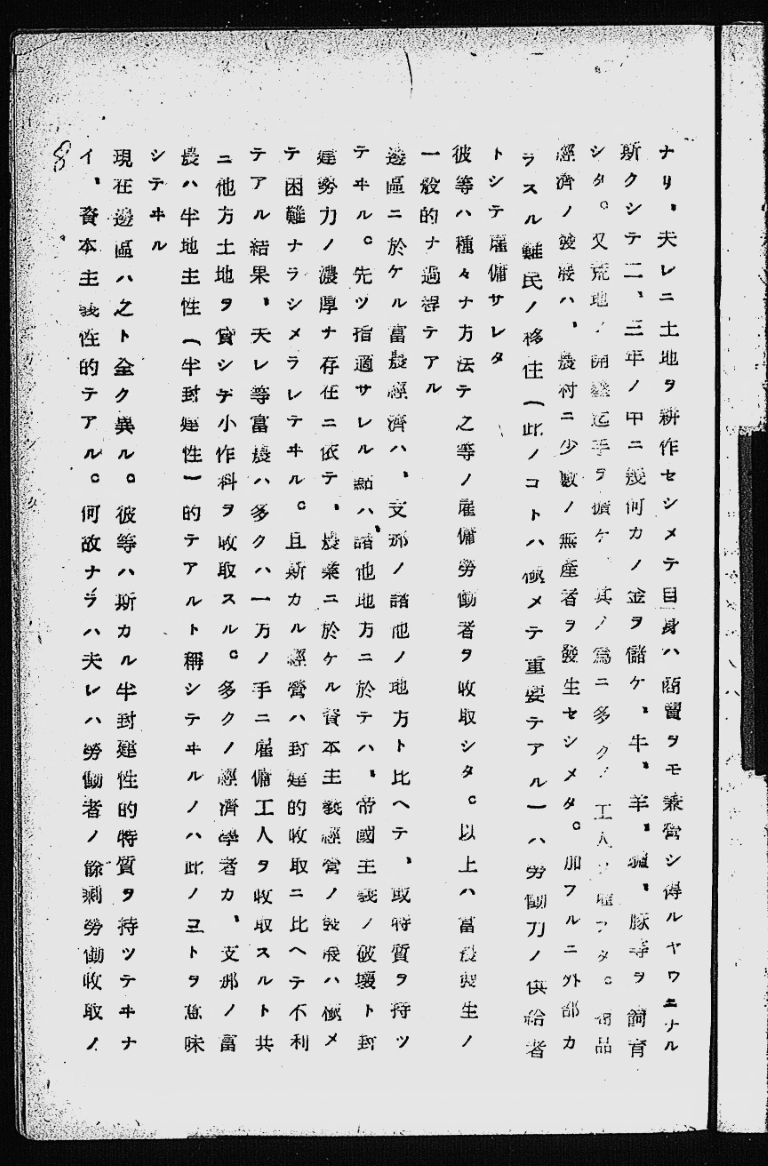 ナリ、夫レニ土地ヲ耕作セシメテ自身ハ商買ヲモ兼営シ得ルヤウニナル
斯クシテ二、三年ノ中ニ幾何カノ金ヲ儲ケ、牛、羊、豚等ヲ飼育
シタ。又荒地ノ開墾迄手ヲ擴ケ 其ノ爲ニ多クノ工人ヲ雇フタ。商品
經濟ノ發展ハ、農村ニ少數ノ無產者ヲ發生セシメタ。加フルニ外部カ
ラスル難民ノ移住(此ノコトハ極メテ重要テアル)ハ労働力ノ供給者
トシテ雇傭サレタ
彼等ハ種々ナ方法テ之等ノ雇傭勞働者ヲ收取シタ。以上ハ富農發生ノ
一般的ナ過程テアル
邊區ニ於ケル富農經濟ハ、支那ノ諸他ノ地方ト比ヘテ、取特質ヲ持ツ
テヰル。先ツ指適サレル點ハ、諸他地方ニ於テハ、帝國主義ノ破壞ト封
建勢力ノ濃厚ナ存在ニ依テ、農業ニ於ケル資本主義經營ノ發展ハ極メ
テ困難ナラシメラレテヰル。且斯カル經營ハ封建的收取ニ比ヘテ不利
テアル結果、夫レ等富農ハ多クハ一方ノ手ニ雇傭工人ヲ收取スルト共
ニ他方土地ヲ貸シテ小作料ヲ收取スル。多クノ經濟學者カ、支那ノ富
農ハ半地主性(半封建性)的テアルト稱シテヰルノハ此ノコトヲ意味
シテヰル
現在邊區ハ之ト全ク異ル。彼等ハ斯カル半封建性的特質ヲ持ツテヰナ
イ、資本主義性的テアル。何故ナラハ夫レハ勞働者ノ餘剩勞働收取ノ
8